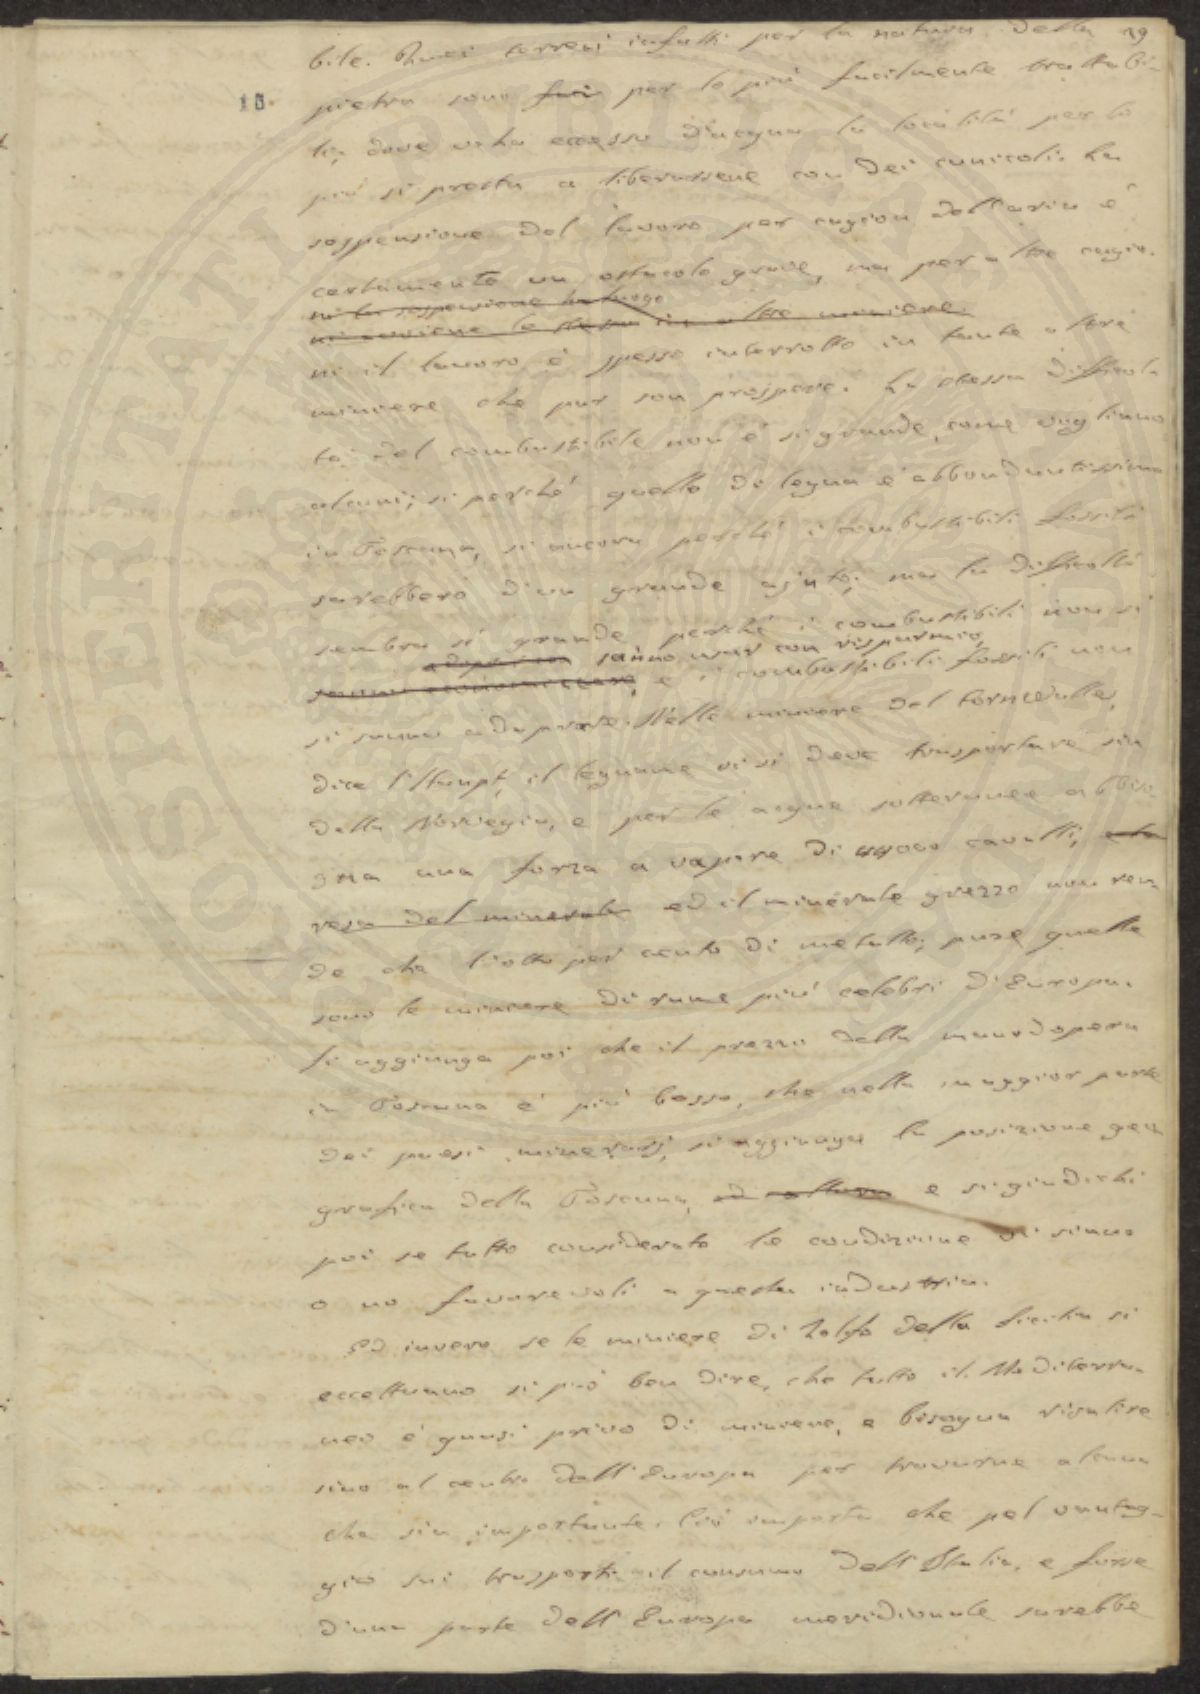 19
bile. Quei terreni infatti per la natura della
15
pietra sono faci per lo più facilmente trattabi-
li, dove vi ha eccesso d'acqua la località per lo
più si presta a liberarsene con dei cunicoli. La
sospensione del lavoro per cagion dell'aria è
certamente un ostacolo grave, ma per altre cagio-
ni la sospensione ha luogo
ni avviene lo stesso in altre miniere.
ni il lavoro è spesso interrotto in tante altre
miniere che pur son prospere. La stessa difficol-
tà del combustibile non è sì grande, come vogliono
alcuni; sì perché quello di legna è abbondantissimo
in Toscana, sì ancora perché i combustibili fossili
sarebbero d'un grande ajuto; ma la difficoltà
sembra sì grande, perché i combustibili non si
sanno usar con risparmio,
sanno economizzare, e i combustibili fossili non
si sanno adoprare. Nelle miniere del Cornwallis,
dice l'Haupt, il legname vi si deve trasportare sin
dalla Norvegia, e per le acque sotterranee abbiso-
gna una forza a vapore di 44000 cavalli, e la
resa del minerale ed il minerale grezzo non ren-
de che l'otto per cento di metallo; pure quelle
sono le miniere di rame più celebri d'Europa.
Si aggiunga poi che il prezzo della manodopera
in Toscana è più basso, che nella maggior parte
dei paesi minerarj, si aggiunga la posizione geo-
grafica della Toscana, ed allora e si giudichi
poi se tutto considerato le condizione vi siano
o no favorevoli a questa industria.
Ed invero se le miniere di Zolfo della Sicilia si
eccettuano si può ben dire, che tutto il Mediterra-
neo è quasi privo di miniere, e bisogna risalire
sino al centro dell'Europa per trovarne alcuna
che sia importante. Ciò importa che pel vantag-
gio sui trasporti il consumo dell'Italia, e forse
d'una parte dell'Europa meridionale sarebbe